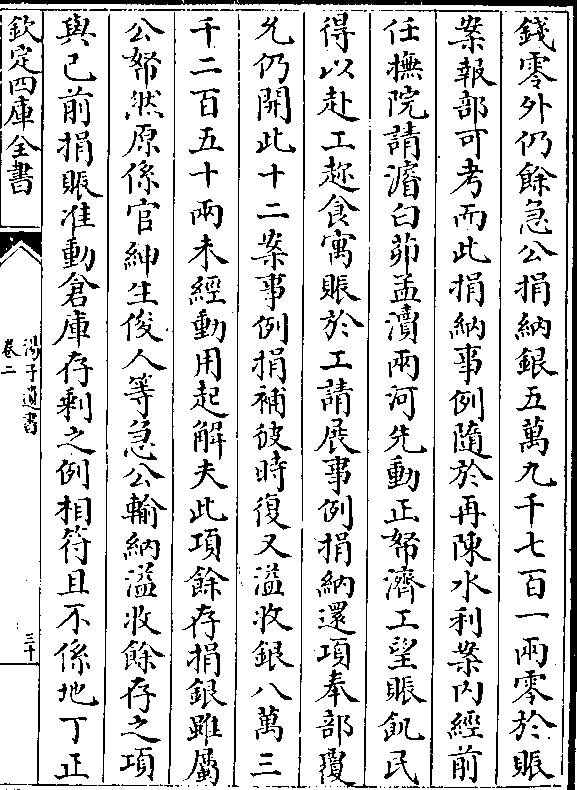 錢零外仍餘急公捐納銀五萬九千七百一兩零於賑
案報部可考而此捐納事例隨於再陳水利案内經前
任撫院請濬白茆孟瀆兩河先動正帑濟工望賑飢民
得以赴工趂食寓賑於工請展事例捐納還項奉部覆
允仍開此十二案事例捐補彼時復又溢收銀八萬三
千二百五十兩未經動用起解夫此項餘存捐銀雖屬
公帑然原係官紳生俊人等急公輸納溢收餘存之項
與已前捐賑准動倉庫存剩之例相符且不係地丁正
欽定四庫全書
湯子遺書
卷二
三十